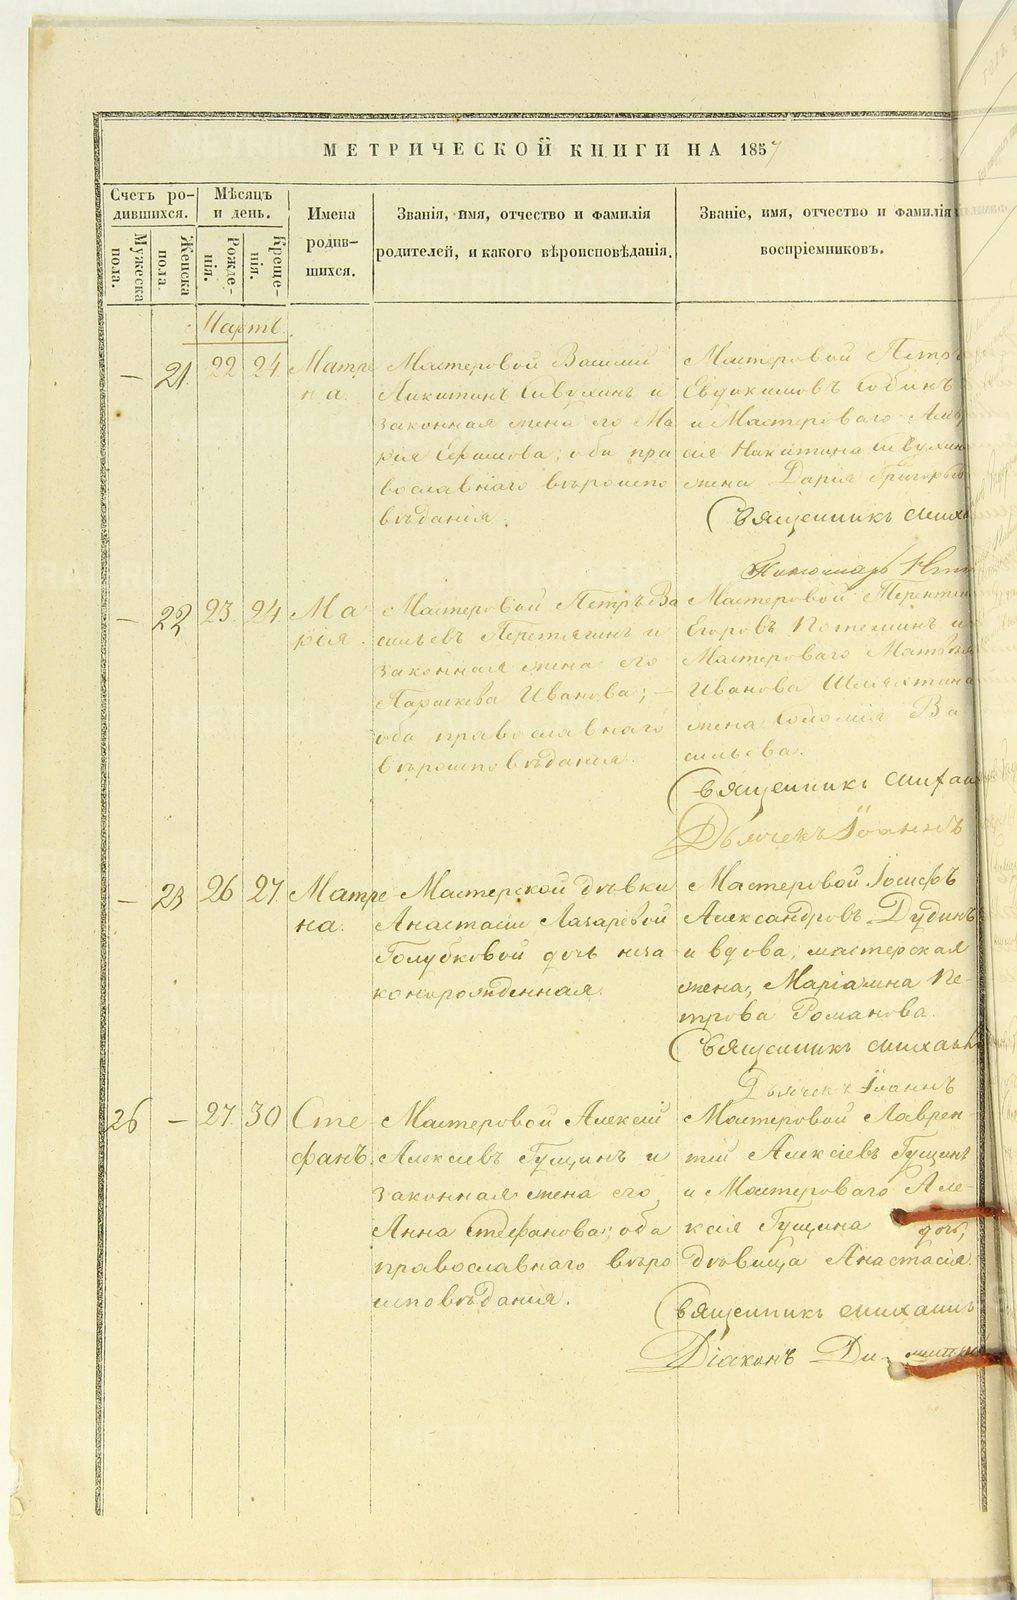 МЕТРИЧЕСКОЙ КНИГИ НА 1857
Счетъ ро-
дившихся.
Мужеска
пола.
Женска
пола.
Мѣсяцъ
и день.
Рожде-
нія.
Креще-
нія.
Имена
родив-
шихся.
Званія, имя, отчество и фамилія
родителей, и какого вѣроисповѣданія.
Званіе, имя, отчество и фамилія
воспріемниковъ.
Мартъ.
— 21. 22 24 Матре
на.
Мастеровой Василий
Никитинъ и
законная жена его Ма
рия Ефимова, оба пра
вославнаго вѣроиспо
вѣдания.
Мастеровой Петръ
Евдокимовъ Собинъ
и Мастероваго
сія Никитина
жена Дарія Григорьева
Священникъ Миха
Пономарь
— 22 23. 24. Ма
рія.
Мастеровой Петръ Ва
сильевъ Перетягинъ и
законная жена его
Параскева Иванова; —
оба православнаго
вѣроисповѣдания.
Мастеровой Терентий
Егоровъ Потемкинъ и
Мастероваго Матвея
Иванова Шляхтина
жена Соломія Ва
сильева.
Священникъ Михаи
Дьячекъ Іоаннъ
— 23 26 27. Матре
на.
Мастерской дѣвки
Анастасіи Лазаревой
Голубковой дочь неза
коннорожденная.
Мастеровой Іосифъ
Александровъ Дудинъ
и вдова, мастерская
жена, Маріамна Пе-
трова Романова.
Священникъ Михаилъ
Дьячекъ Іоаннъ
26 — 27. 30 Сте
фанъ.
Мастеровой Алексій
Алексіевъ Гущинъ и
законная жена его
Анна Стефанова; оба
православнаго вѣро
исповѣдания.
Мастеровой Лаврен-
тій Алексіевъ Гущинъ
и Мастероваго Але-
ксія Гущина дочь,
дѣвица Анастасія.
Священникъ Михаилъ
Діаконъ Ди-
METRIKI.GASO-URAL.RU